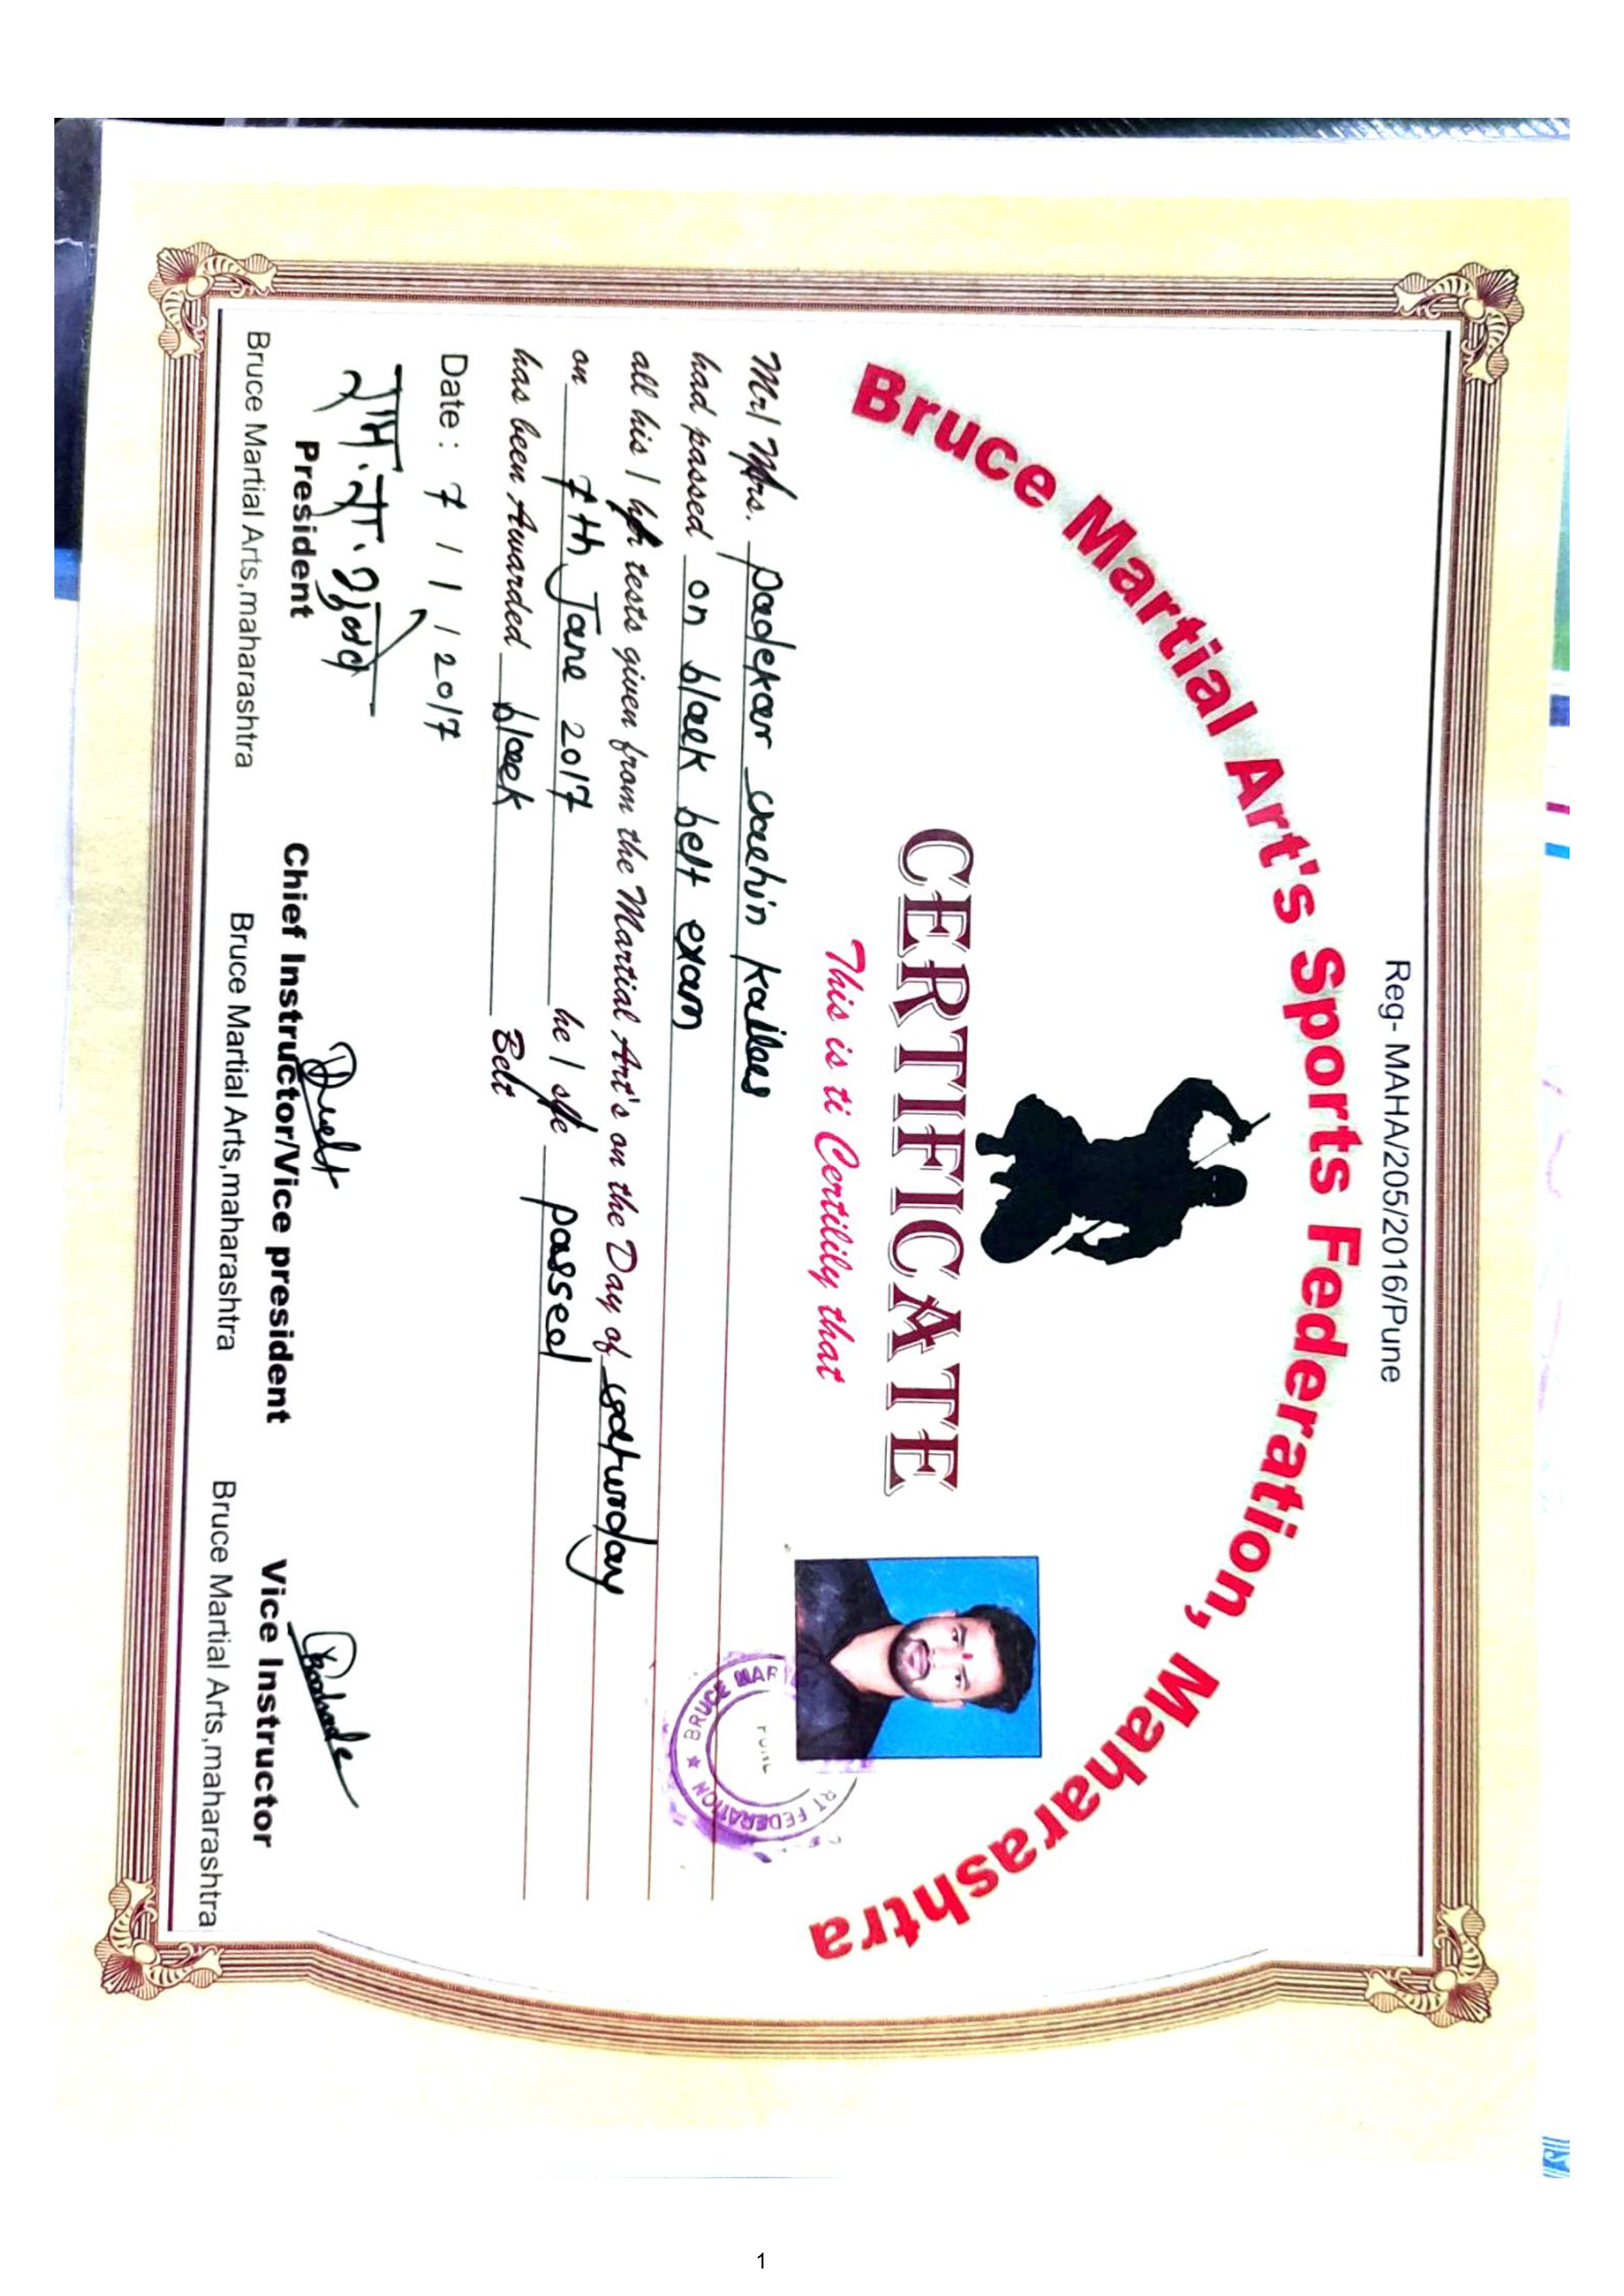 Reg- MAHA/205/2016/Pune
Bruce Martial Art's Sports Federation, Maharashtra
CERTIFICATE
This is ti Certilily that
Mr/ Mrs. padekar sachin Kailas
had passed on black belt exam
all his / her tests given from the Martial Art's on the Day of saturday
on 7th Jane 2017 he / she passed
has been Awarded black Belt
Date : 7 / 1 / 2017
राम. ना.
President
Bruce Martial Arts,maharashtra
Chief Instructor/Vice president
Bruce Martial Arts,maharashtra
Vice Instructor
Bruce Martial Arts,maharashtra
RT FEDERATION ★ BRUCE MAR
PUNE
1